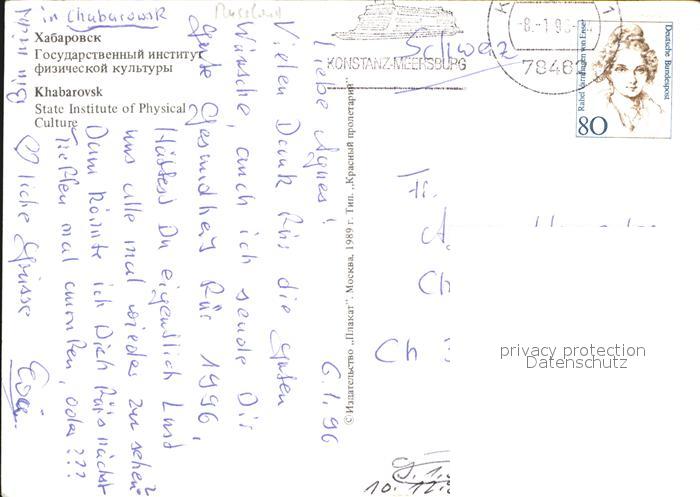 in Chabarowsk
Russland
Хабаровск
Государственный институт
физической культуры
Khabarovsk
State Institute of Physical
Culture
6.1.96
Liebe Agnes!
Vielen Dank für die guten
Wünsche, auch ich sende Dir
gute Gesundheit für 1996,
Hättest Du eigentlich Lust
uns alle mal wieder zu sehen?
Dann könnte ich Dich fürs nächst
Treffen mal anrufen, oder???
♡liche Grüsse
© Издательство „Плакат". Москва, 1989 г. Тип. „Красный пролетарий"
KONSTANZ-MEERSBURG
Schweiz
-8.-1.96
7846
Rahel Varnhagen von Ense
Deutsche Bundespost
80
Fr.
A
Ch
Ch
privacy protection
Datenschutz